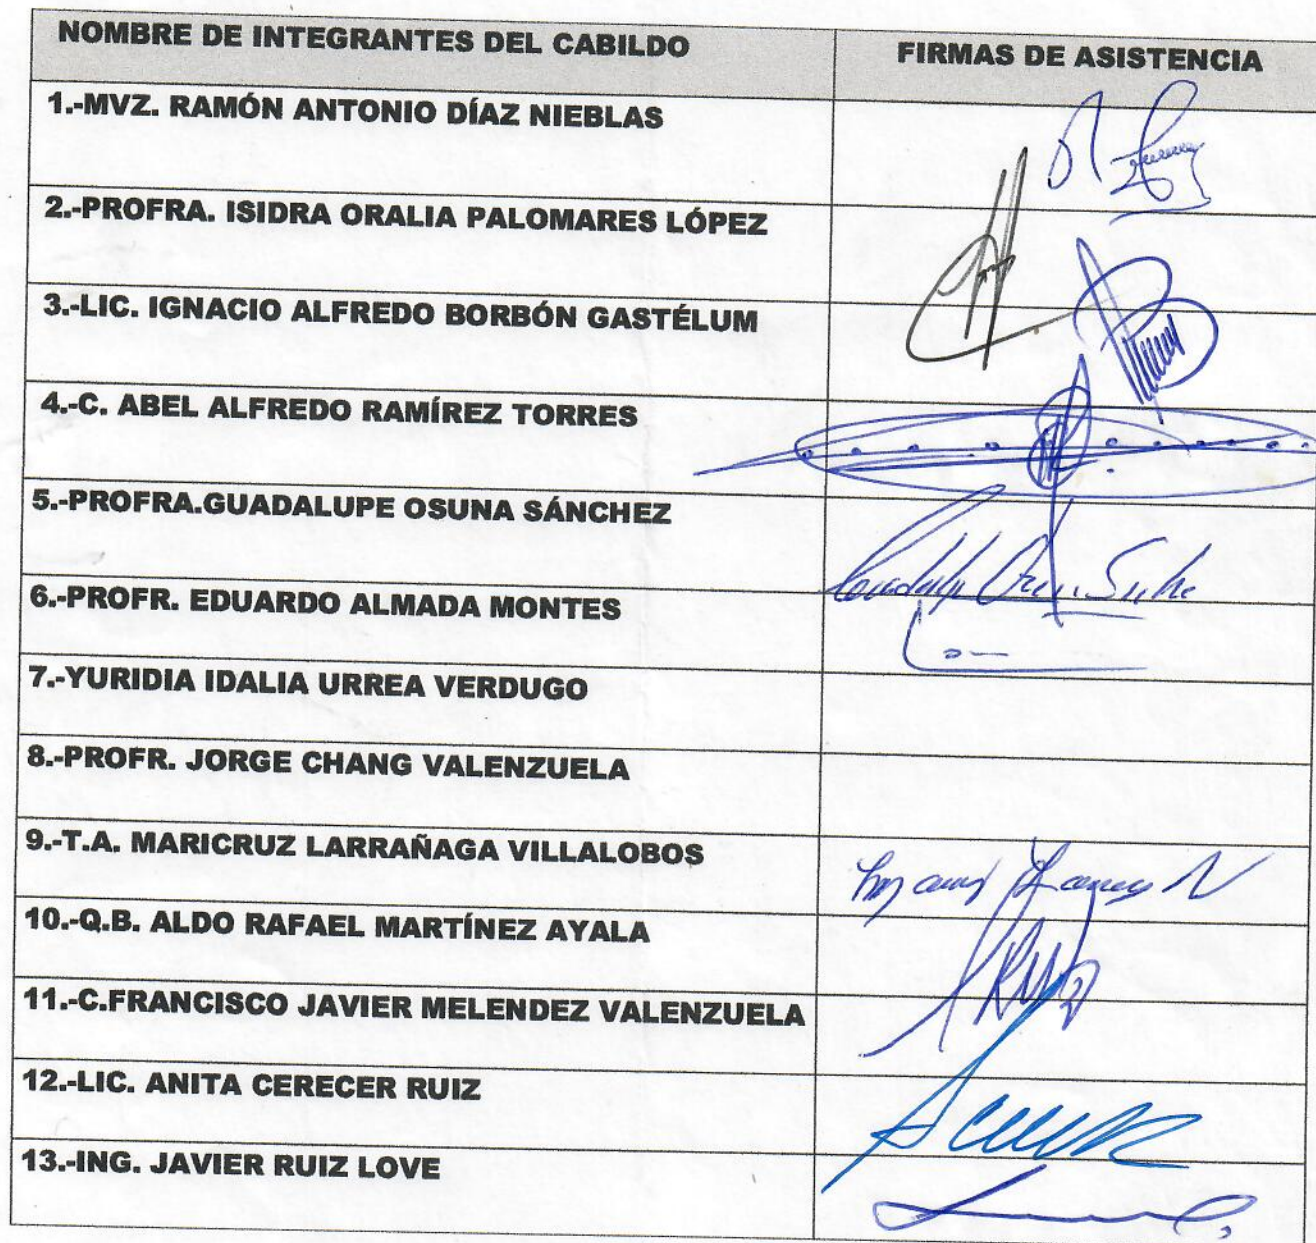 NOMBRE DE INTEGRANTES DEL CABILDO FIRMAS DE ASISTENCIA
1.-MVZ. RAMÓN ANTONIO DÍAZ NIEBLAS
2.-PROFRA. ISIDRA ORALIA PALOMARES LÓPEZ
3.-LIC. IGNACIO ALFREDO BORBÓN GASTÉLUM
4.-C. ABEL ALFREDO RAMÍREZ TORRES
5.-PROFRA.GUADALUPE OSUNA SÁNCHEZ
6.-PROFR. EDUARDO ALMADA MONTES
7.-YURIDIA IDALIA URREA VERDUGO
8.-PROFR. JORGE CHANG VALENZUELA
9.-T.A. MARICRUZ LARRAÑAGA VILLALOBOS
10.-Q.B. ALDO RAFAEL MARTÍNEZ AYALA
11.-C.FRANCISCO JAVIER MELENDEZ VALENZUELA
12.-LIC. ANITA CERECER RUIZ
13.-ING. JAVIER RUIZ LOVE